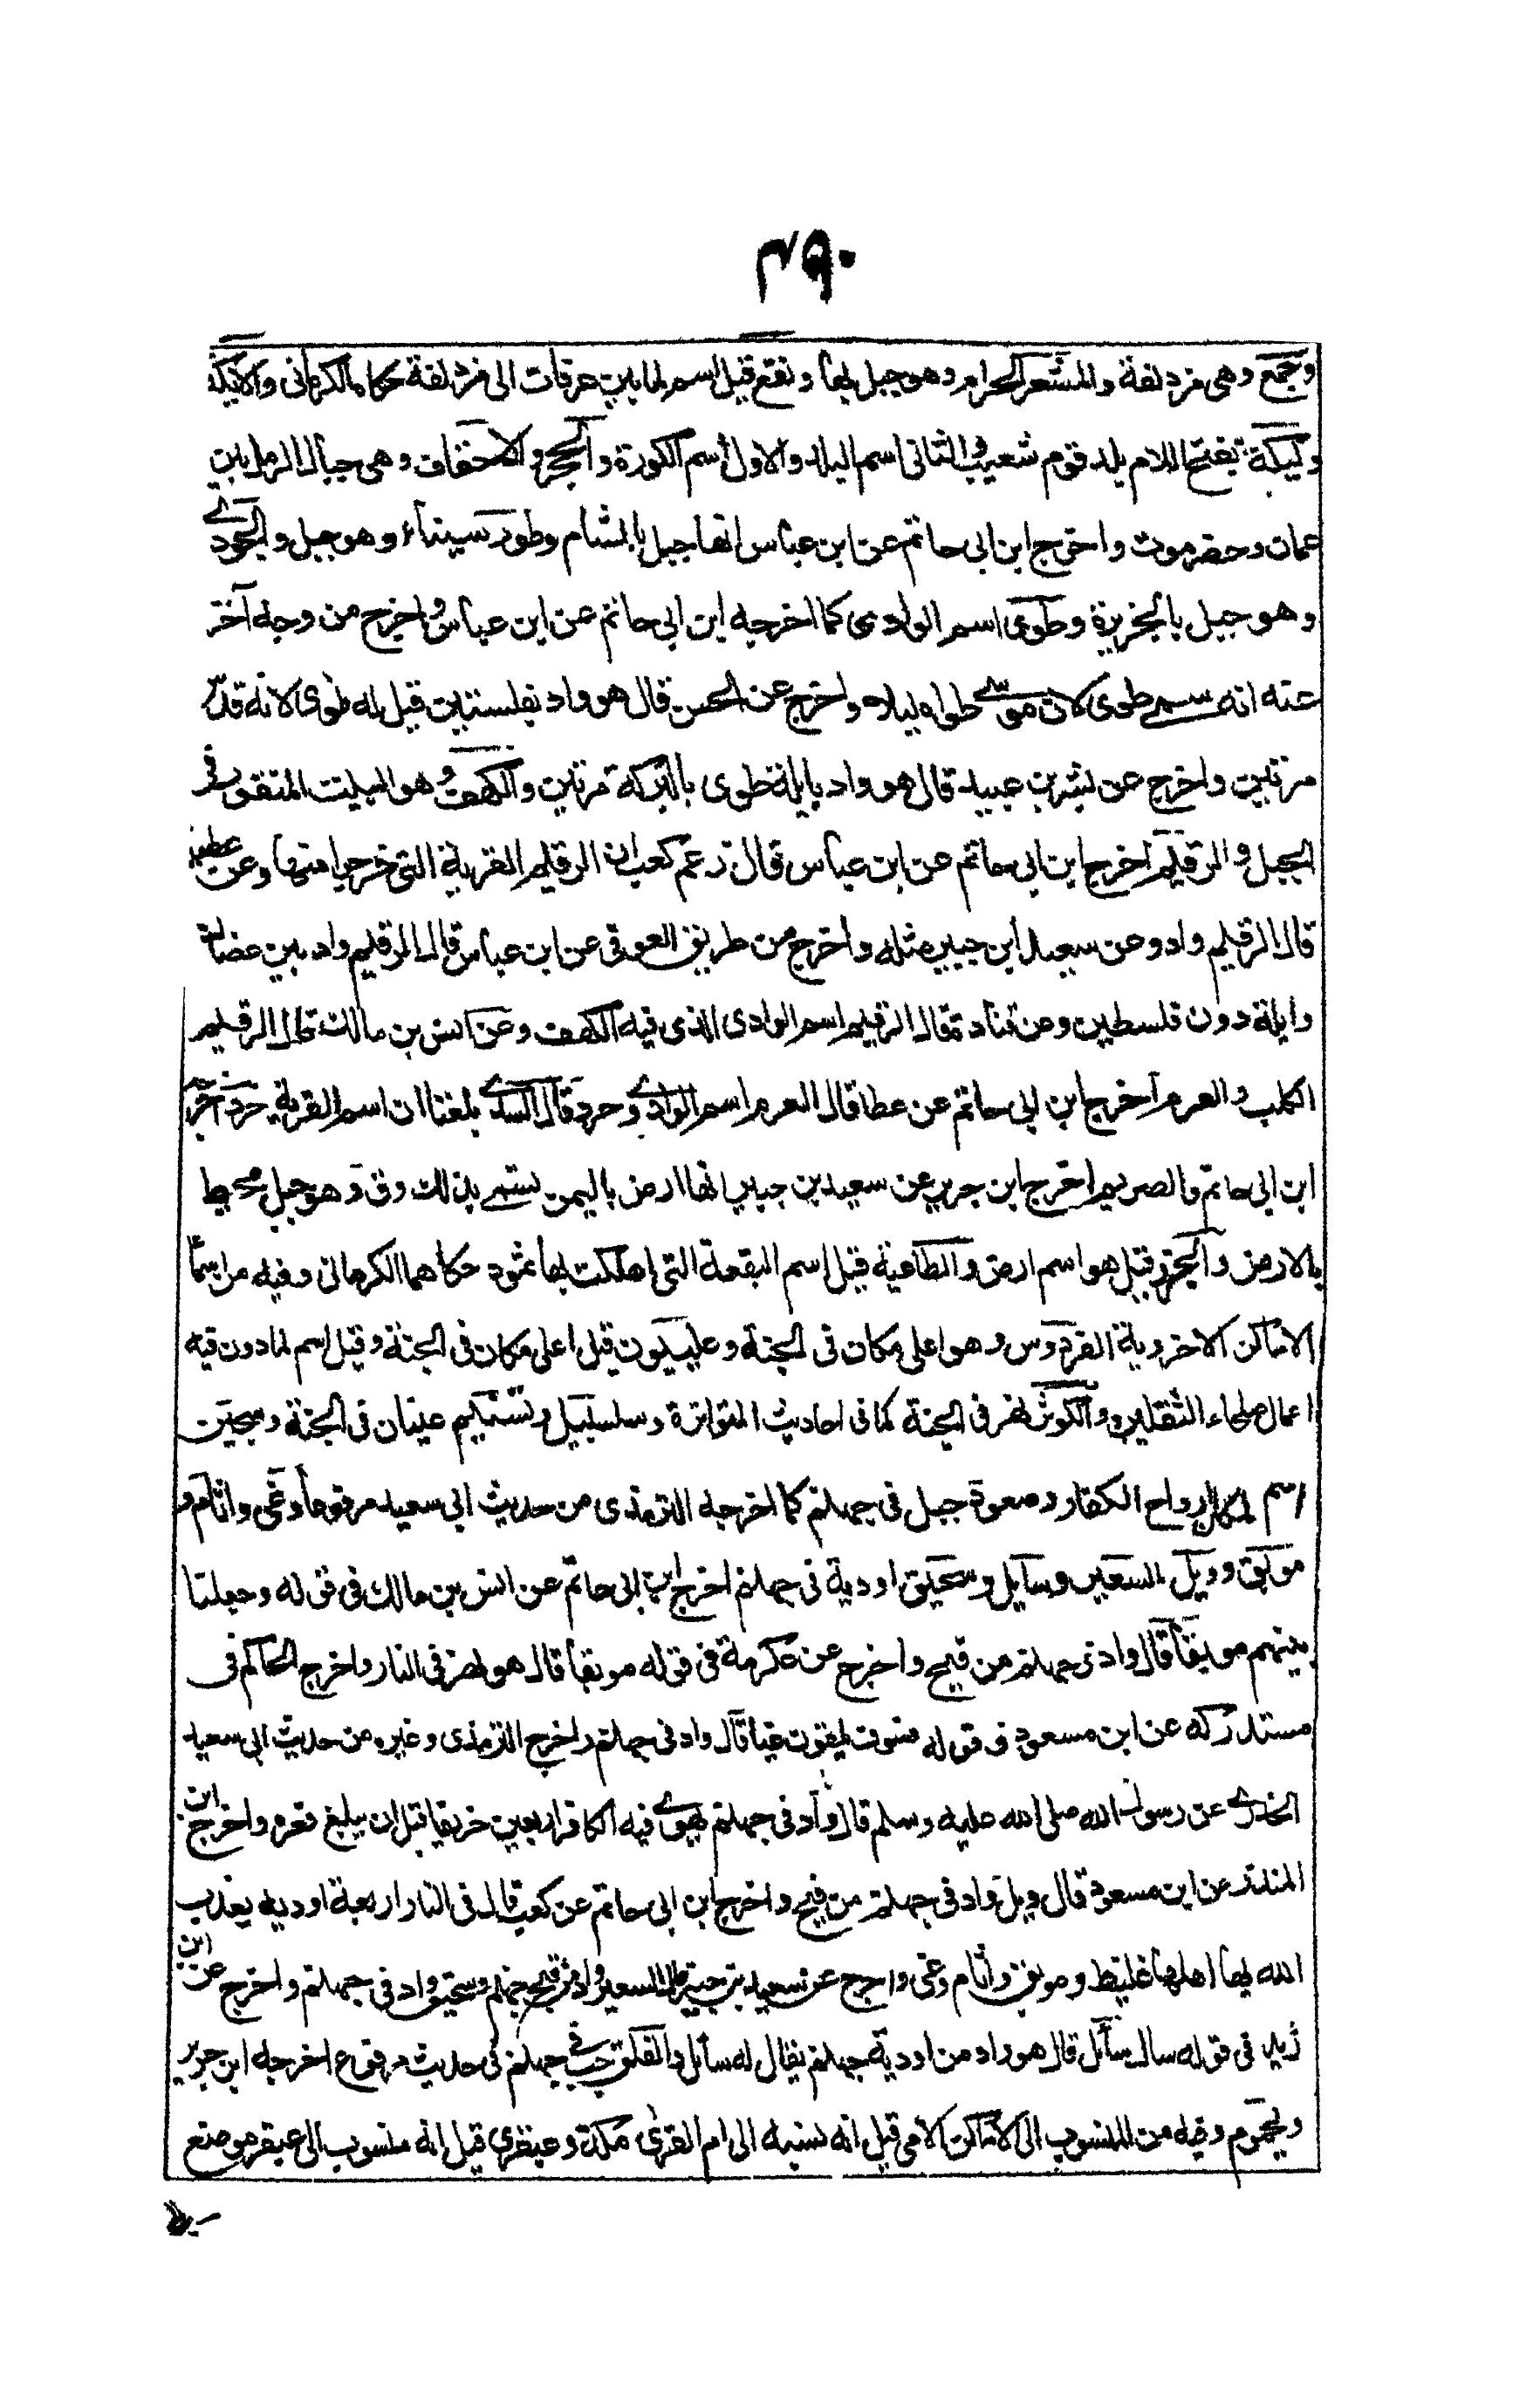 ٤٩٠
وجمع وهى مزدلفة والمشعر الحرام وهو جبل بها ونقع قيل اسم لما بين عرفات الى مزدلفة حكاه الكرمانى والايكة
وليكة بفتح اللام بلد قوم شعيب والثانى اسم البلد والاول اسم الكورة والحجر والاحقاف وهى جبال الرمل بين
عمان وحضرموت واخرج ابن ابى حاتم عن ابن عباس انها جبل بالشام وطور سيناء وهو جبل والجودے
وهو جبل بالجزيرة وطوى اسم الوادى كما اخرجه ابن ابى حاتم عن ابن عباس واخرج من وجه آخر
عنه انه سمے طوى لان موسے طواه ليلا واخرج عن الحسن قال هو واد بفلسنتين قيل له طوى لانه قدّس
مرتين واخرج عن بشر بن عبيد قال هو واد بايلة طوى بالبركة مرتين والكهف وهو البيت المنقور فى
الجبل والرقيم اخرج ابن ابى حاتم عن ابن عباس قال زعم كعب ان الرقيم القرية التى خرجوا منها وعن عطية
قال الرقيم واد وعن سعيد ابن جبير مثله واخرج من طريق العوفى عن ابن عباس قال الرقيم واد بين عضان
وايلة دون فلسطين وعن قتادة قال الرقيم اسم الوادى الذى فيه الكهف وعن انس بن مالك قال الرقيم
الكلب والعرم اخرج ابن ابى حاتم عن عطا قال العرم اسم الوادے وحرد قال السدے بلغنا ان اسم القرية حرد اخرجه
ابن ابى حاتم والصريم اخرج ابن جرير عن سعيد بن جبير انها ارض باليمن تسمے بذلك وق وهو جبل محيط
بالارض والجرز قيل هو اسم ارض والطاغية قيل اسم البقعة التى اهلكت بها ثمود حكاهما الكرمانى وفيه من اسما
الاماكن الاخروية الفردوس وهو اعلى مكان فى الجنة وعليون قيل اعلى مكان فى الجنة وقيل اسم لما دون فيه
اعمال صلحاء الثقلين والكوثر نهر فى الجنة كما فى احاديث المتواترة وسلسبيل وتسنيم عينان فى الجنة وسجين
اسم لمكان ارواح الكفار وصعود جبل فى جهنم كما اخرجه الترمذى من حديث ابى سعيد مرفوعا وغى واثام و
موبق وويل السعير وسايل وسحيق اودية فى جهنم اخرج ابن ابى حاتم عن انس بن مالك فى قوله وجعلنا
بينهم موبقا قال واد فى جهنم من قيح واخرج عن عكرمة فى قوله موبقا قال هو نهر فى النار واخرج الحاكم فى
مستدركه عن ابن مسعود فى قوله فسوف يلقون غيا قال واد فى جهنم واخرج الترمذى وغيره من حديث ابى سعيد
الخدرے عن رسول الله صلى الله عليه وسلم قال واد فى جهنم يهوے فيه الكافر اربعين خريفا قبل ان يبلغ قعره واخرج ابن
المنذر عن ابن مسعود قال ويل واد فى جهنم من قيح واخرج ابن ابى حاتم عن كعب قال فى النار اربعة اودية يعذب
الله بها اهلها غليظ وموبق واثام وغى واخرج عن سعيد بن جبير قال السعير واد من قيح جهنم وسحيق واد فى جهنم واخرج عن ابن
زيد فى قوله سال سائل قال هو واد من اودية جهنم يقال له سائل والفلق جب فى جهنم فى حديث مرفوع اخرجه ابن جرير
ويحموم وفيه من المنسوب الى الاماكن الامى قيل انه نسبة الى ام القرى مكة وعبقرى قيل انه منسوب الى عبقر موضع